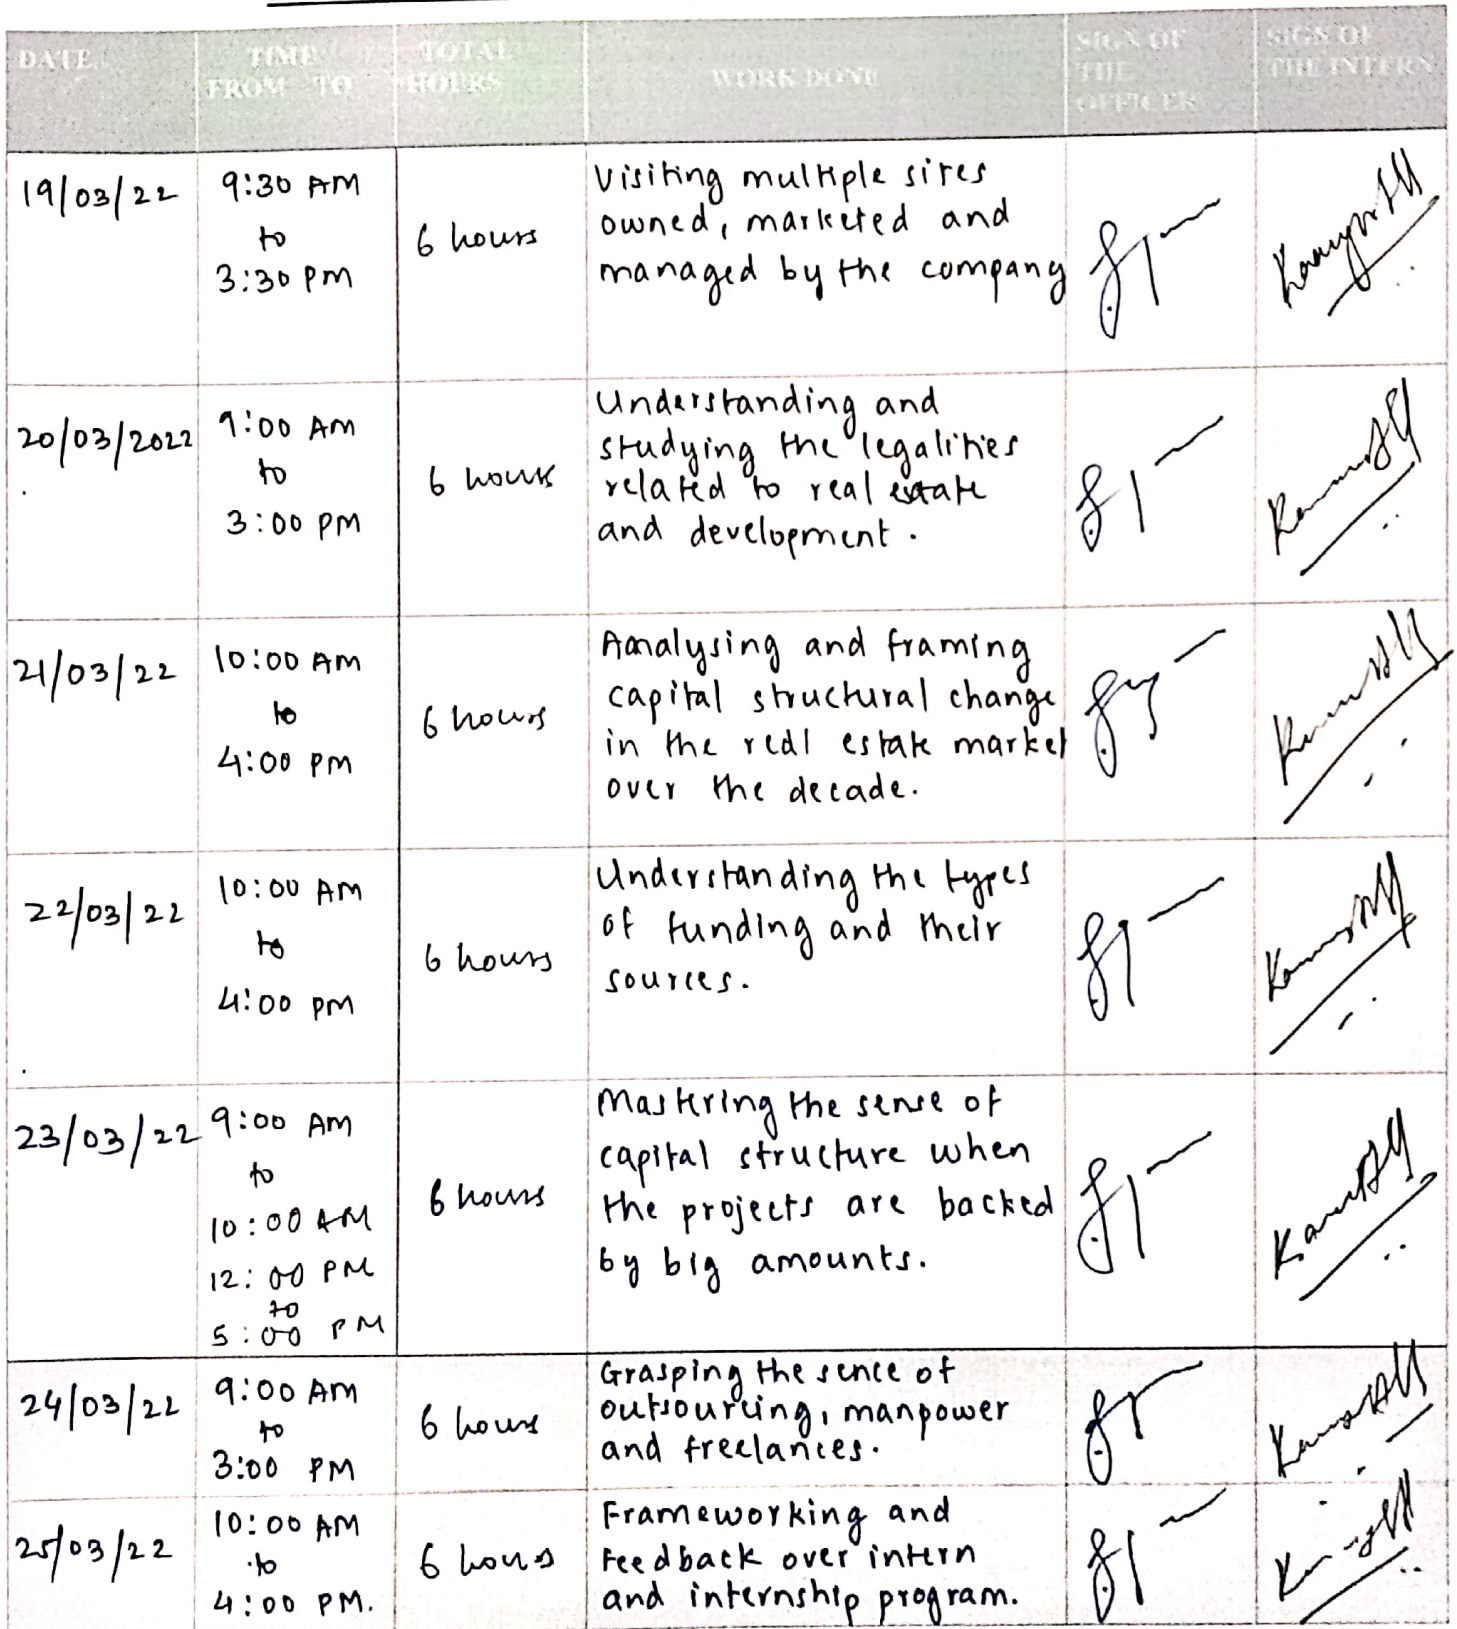 DATE TIME FROM TO TOTAL HOURS WORK DONE SIGN OF THE OFFICER SIGN OF THE INTERN
19/03/22
9:30 AM
to
3:30 PM
6 hours
Visiting multiple sites
owned, marketed and
managed by the company
20/03/2022
9:00 AM
to
3:00 PM
6 hours
Understanding and
studying the legalities
related to real estate
and development.
21/03/22
10:00 AM
to
4:00 PM
6 hours
Analysing and framing
capital structural change
in the real estate market
over the decade.
22/03/22
10:00 AM
to
4:00 PM
6 hours
Understanding the types
of funding and their
sources.
23/03/22
9:00 AM
to
10:00 AM
12:00 PM
to
5:00 PM
6 hours
Mastering the sense of
capital structure when
the projects are backed
by big amounts.
24/03/22
9:00 AM
to
3:00 PM
6 hours
Grasping the sence of
outsourcing, manpower
and freelances.
25/03/22
10:00 AM
to
4:00 PM.
6 hours
Frameworking and
Feedback over intern
and internship program.